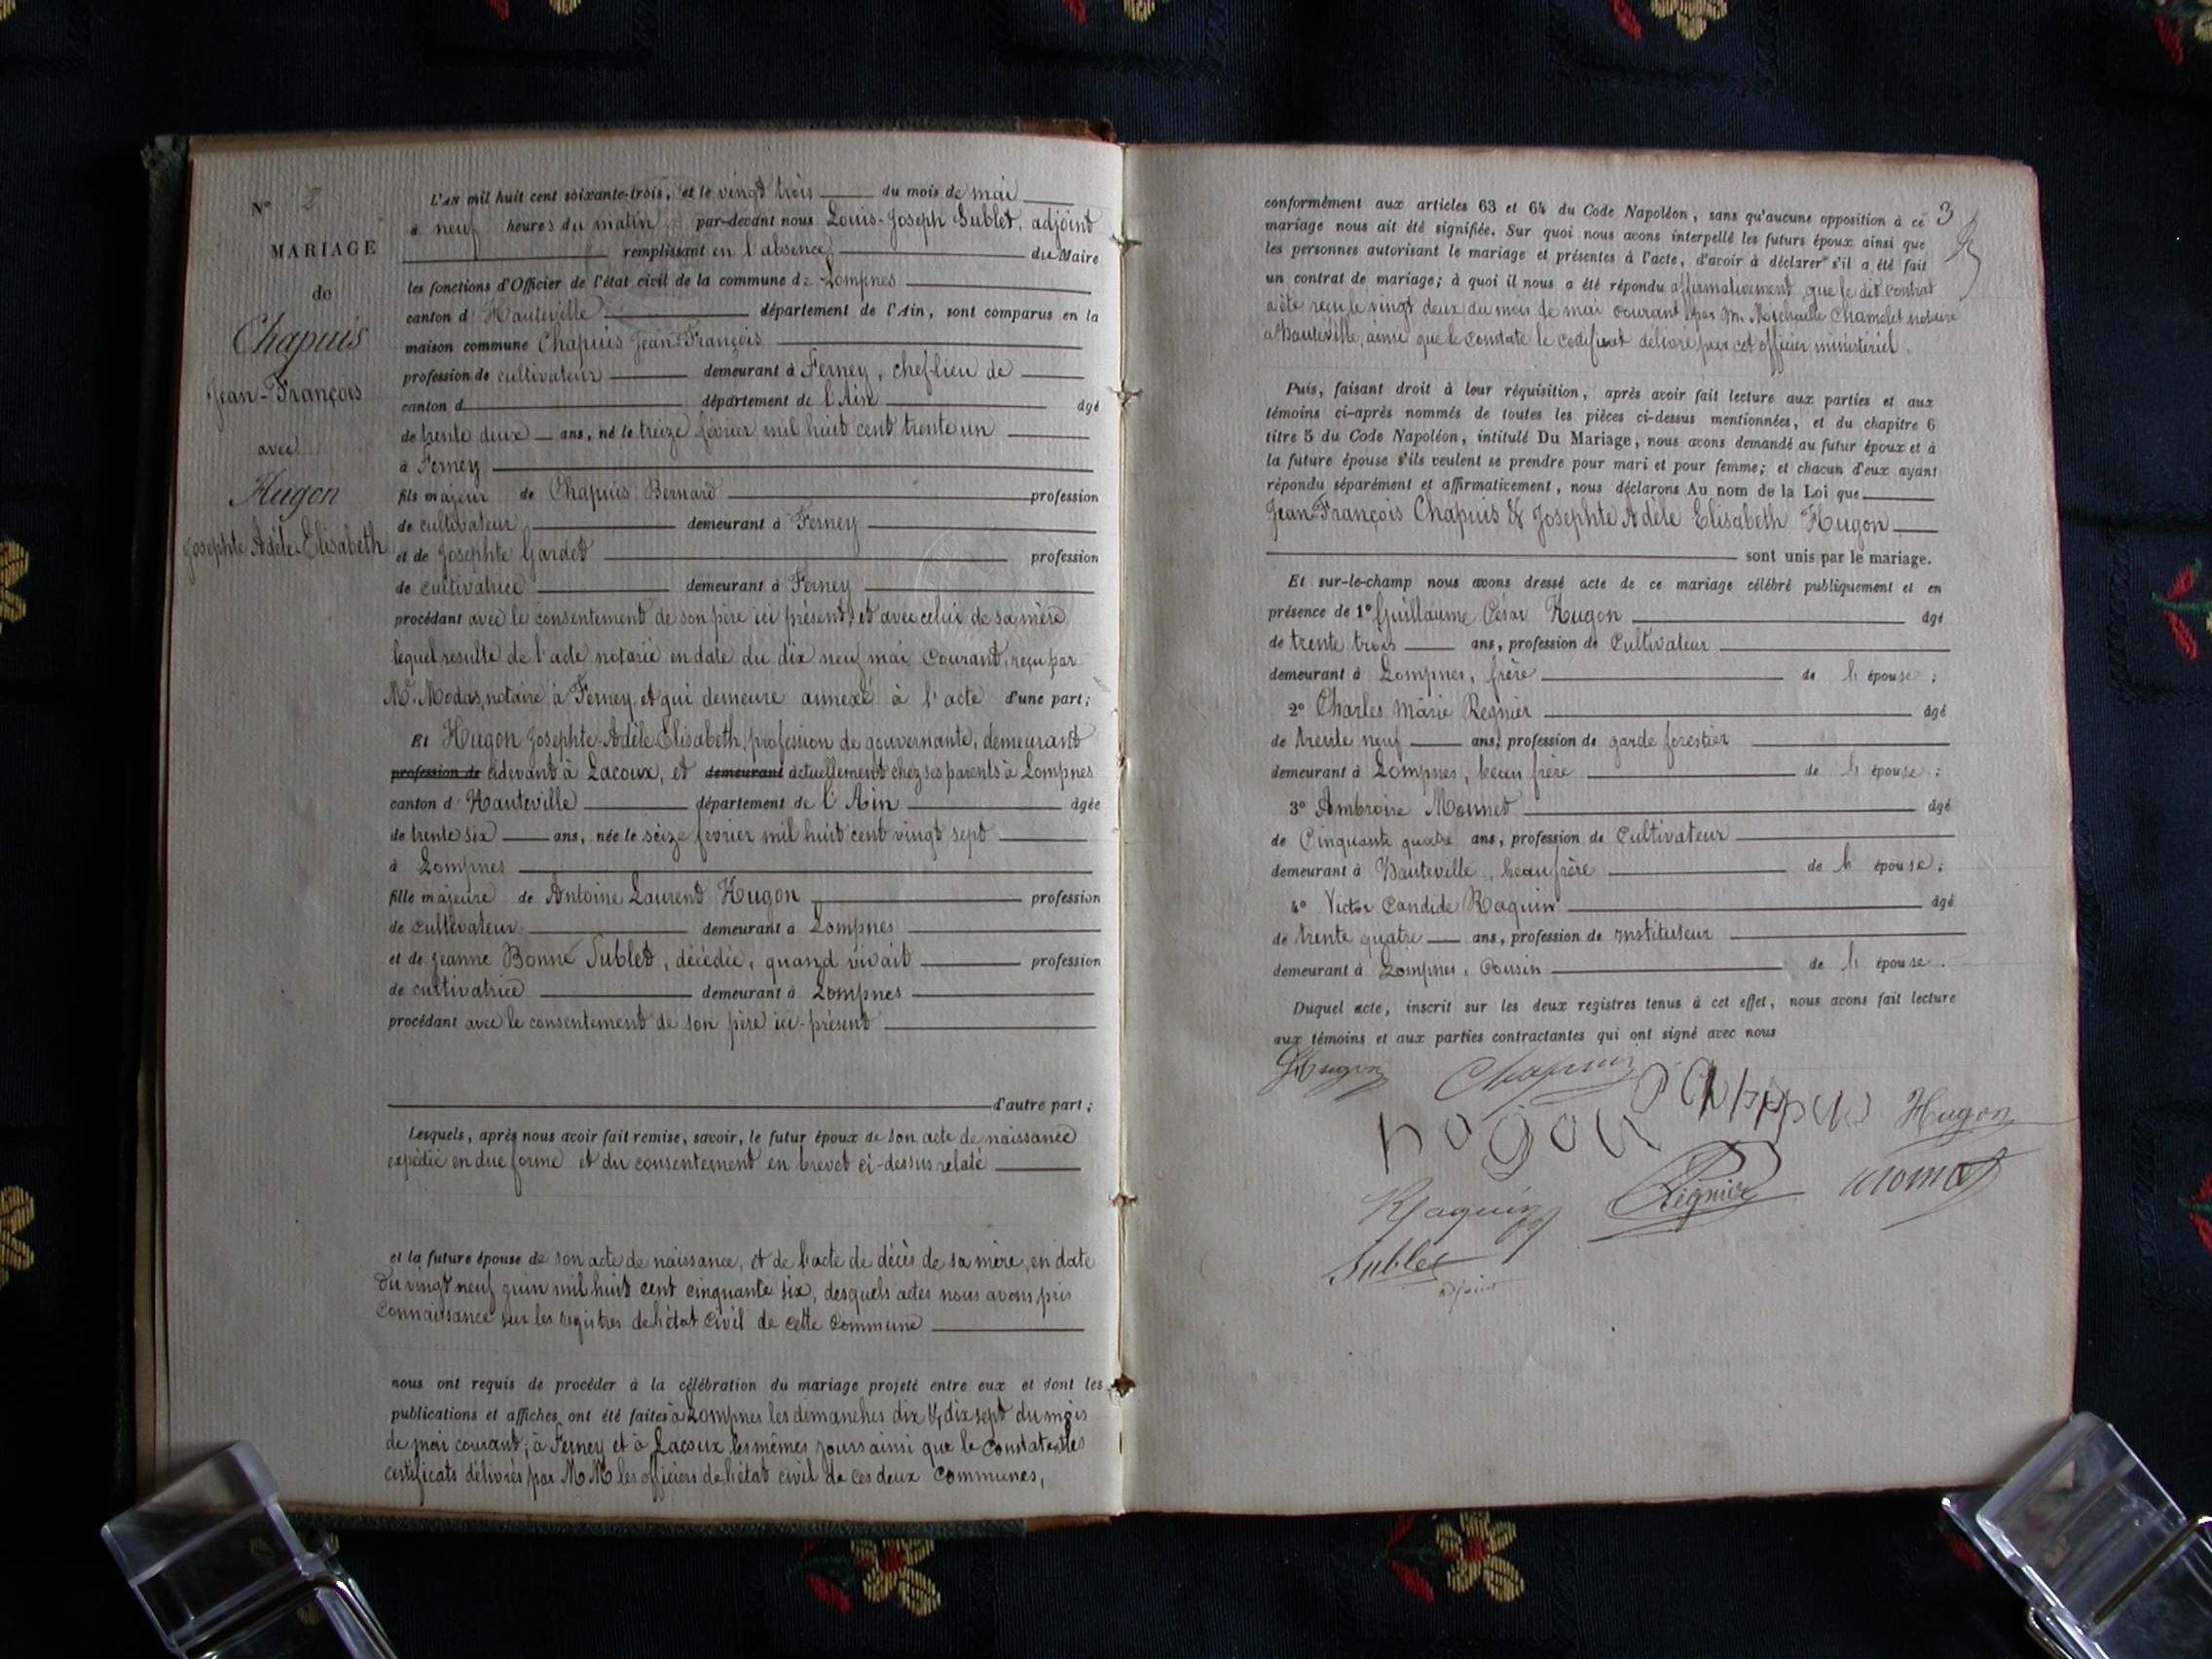 N° 2
MARIAGE
de
Chapuis
Jean-François
avec
Hugon
Josephte Adèle Elisabeth
L'AN mil huit cent soixante-trois, et le vingt trois du mois de mai
à neuf heures du matin par-devant nous Louis-Joseph Sublet, adjoint
remplissant en l'absence du Maire
les fonctions d'Officier de l'état civil de la commune de Lompnes
canton d'Hauteville département de l'Ain, sont comparus en la
maison commune Chapuis Jean-François
profession de cultivateur demeurant à Ferney, chef-lieu de
canton d département de l'Ain âgé
de trente deux ans, né le treize février mil huit cent trente un
à Ferney
fils majeur de Chapuis Bernard profession
de cultivateur demeurant à Ferney
et de Josephte Gardet profession
de cultivatrice demeurant à Ferney
procédant avec le consentement de son père ici présent, et avec celui de sa mère
lequel resulte de l'acte notarié en date du dix neuf mai courant, reçu par
Me. Modas, notaire à Ferney, et qui demeure annexé à l'acte d'une part;
Et Hugon Josephte-Adèle Elisabeth, profession de gouvernante, demeurant
profession de cidevant à Lacoux, et demeurant actuellement chez ses parents à Lompnes
canton d'Hauteville département de l'Ain âgée
de trente six ans, née le seize février mil huit cent vingt sept
à Lompnes
fille majeure de Antoine Laurent Hugon profession
de cultivateur demeurant à Lompnes
et de Jeanne Bonne Sublet, décédée, quand vivait profession
de cultivatrice demeurant à Lompnes
procédant avec le consentement de son père ici-présent
d'autre part;
Lesquels, après nous avoir fait remise, savoir, le futur époux de son acte de naissance
expédié en due forme et du consentement en brevet ci-dessus relaté
et la future épouse de son acte de naissance, et de l'acte de décès de sa mère, en date
du vingt neuf juin mil huit cent cinquante six, desquels actes nous avons pris
connaissance sur les registres de l'état civil de cette commune
nous ont requis de procéder à la célébration du mariage projeté entre eux et dont les
publications et affiches ont été faites à Lompnes les dimanches dix & dix sept du mois
de mai courant; à Ferney et à Lacoux les mêmes jours ainsi que le constatent les
certificats délivrés par M M les officiers de l'état civil de ces deux communes,
3
conformément aux articles 63 et 64 du Code Napoléon, sans qu'aucune opposition à ce
mariage nous ait été signifiée. Sur quoi nous avons interpellé les futurs époux ainsi que
les personnes autorisant le mariage et présentes à l'acte, d'avoir à déclarer s'il a été fait
un contrat de mariage; à quoi il nous a été répondu affirmativement, que le dit contrat
a été reçu le vingt deux du mois de mai courant par M. Michaille Chamelet notaire
à Hauteville, ainsi que le constate le certificat délivré par cet officier ministériel.
Puis, faisant droit à leur réquisition, après avoir fait lecture aux parties et aux
témoins ci-après nommés de toutes les pièces ci-dessus mentionnées, et du chapitre 6
titre 5 du Code Napoléon, intitulé Du Mariage, nous avons demandé au futur époux et à
la future épouse s'ils veulent se prendre pour mari et pour femme; et chacun d'eux ayant
répondu séparément et affirmativement, nous déclarons Au nom de la Loi que
Jean-François Chapuis & Josephte Adèle Elisabeth Hugon
sont unis par le mariage.
Et sur-le-champ nous avons dressé acte de ce mariage célébré publiquement et en
présence de 1° Guillaume César Hugon âgé
de trente trois ans, profession de Cultivateur
demeurant à Lompnes, frère de l'épouse;
2° Charles Marie Regnier âgé
de trente neuf ans, profession de garde forestier
demeurant à Lompnes, beau frère de l'épouse;
3° Ambroise Monnet âgé
de Cinquante quatre ans, profession de Cultivateur
demeurant à Hauteville, beau frère de l'épouse;
4° Victor Candide Raquin âgé
de trente quatre ans, profession de instituteur
demeurant à Lompnes, Cousin de l'épouse.
Duquel acte, inscrit sur les deux registres tenus à cet effet, nous avons fait lecture
aux témoins et aux parties contractantes qui ont signé avec nous
Hugon Chapuis
hugon Hugon
Raquin Régnier
Sublet
adjoint